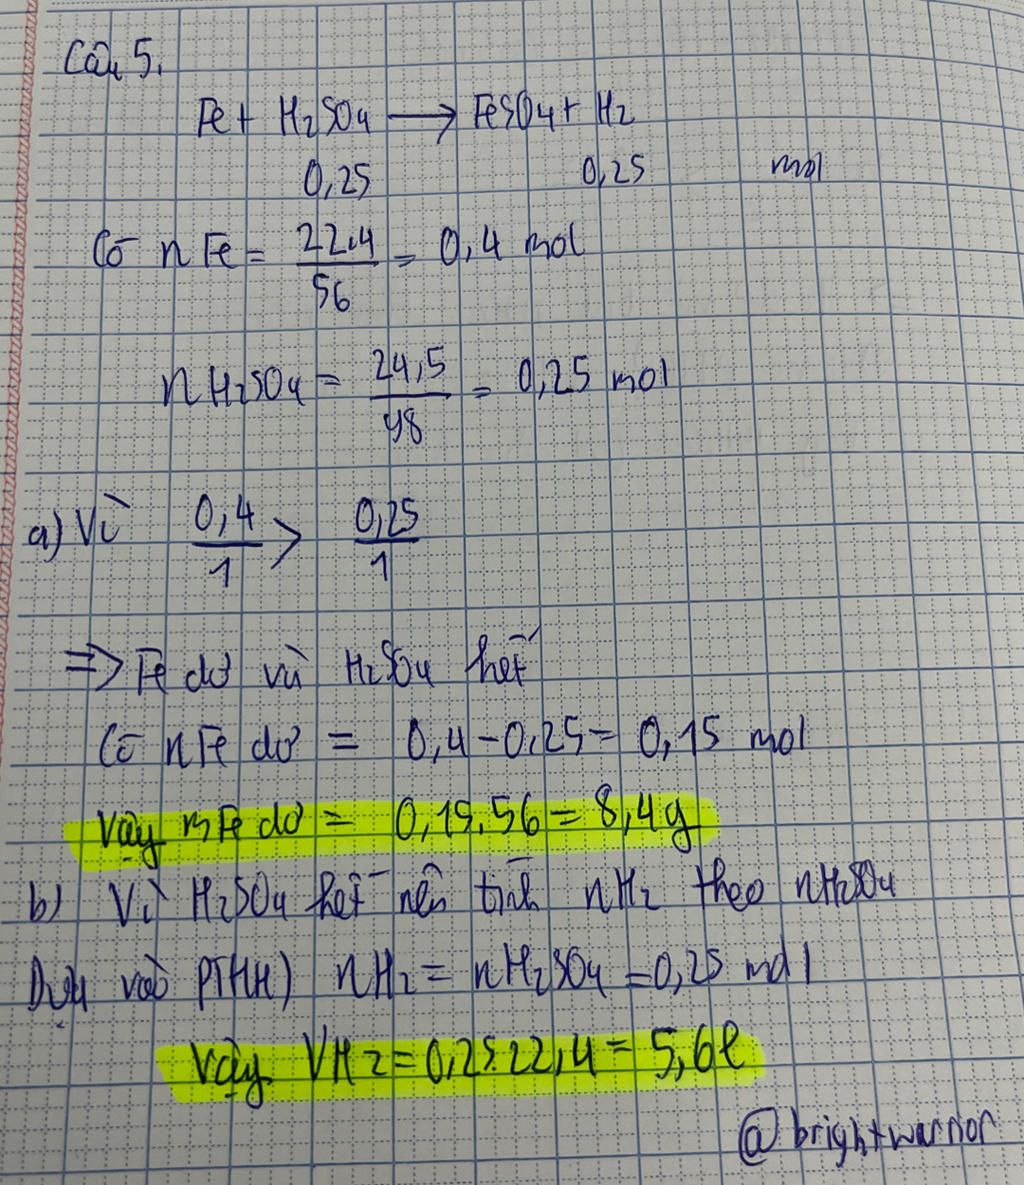 Câu 5.
Fe + H2SO4 → FeSO4 + H2
0,25 0,25 mol
Có nFe = 22,4/56 = 0,4 mol
nH2SO4 = 24,5/98 = 0,25 mol
a) Vì 0,4/1 > 0,25/1
=> Fe dư và H2SO4 hết
Có nFe dư = 0,4 - 0,25 = 0,15 mol
Vậy mFe dư = 0,15.56 = 8,4g
b) Vì H2SO4 hết nên tính nH2 theo nH2SO4
Dựa vào PTHH) nH2 = nH2SO4 = 0,25 mol
Vậy VH2 = 0,25.22,4 = 5,6l
@brightwarrior